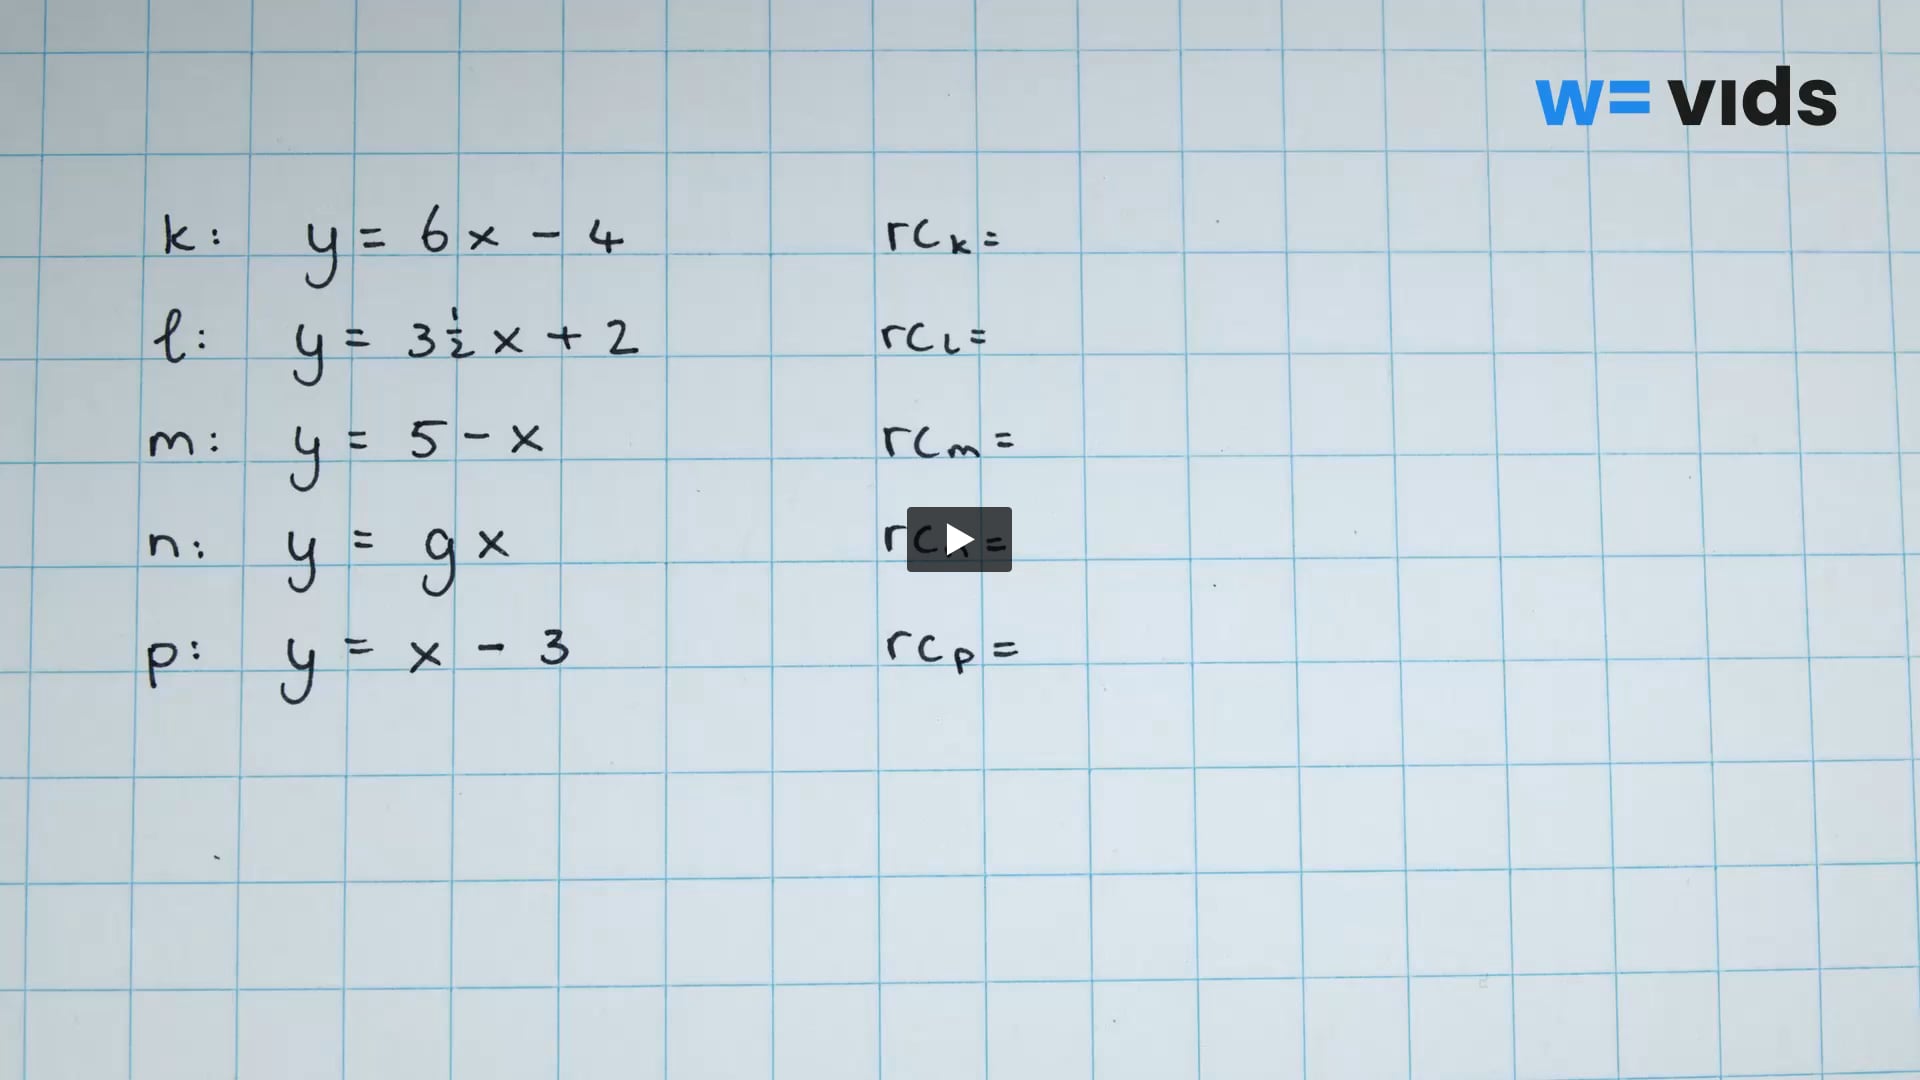 w= vids
k: y = 6x - 4 rc_k =
l: y = 3½x + 2 rc_l =
m: y = 5 - x rc_m =
n: y = gx rc_n =
p: y = x - 3 rc_p =